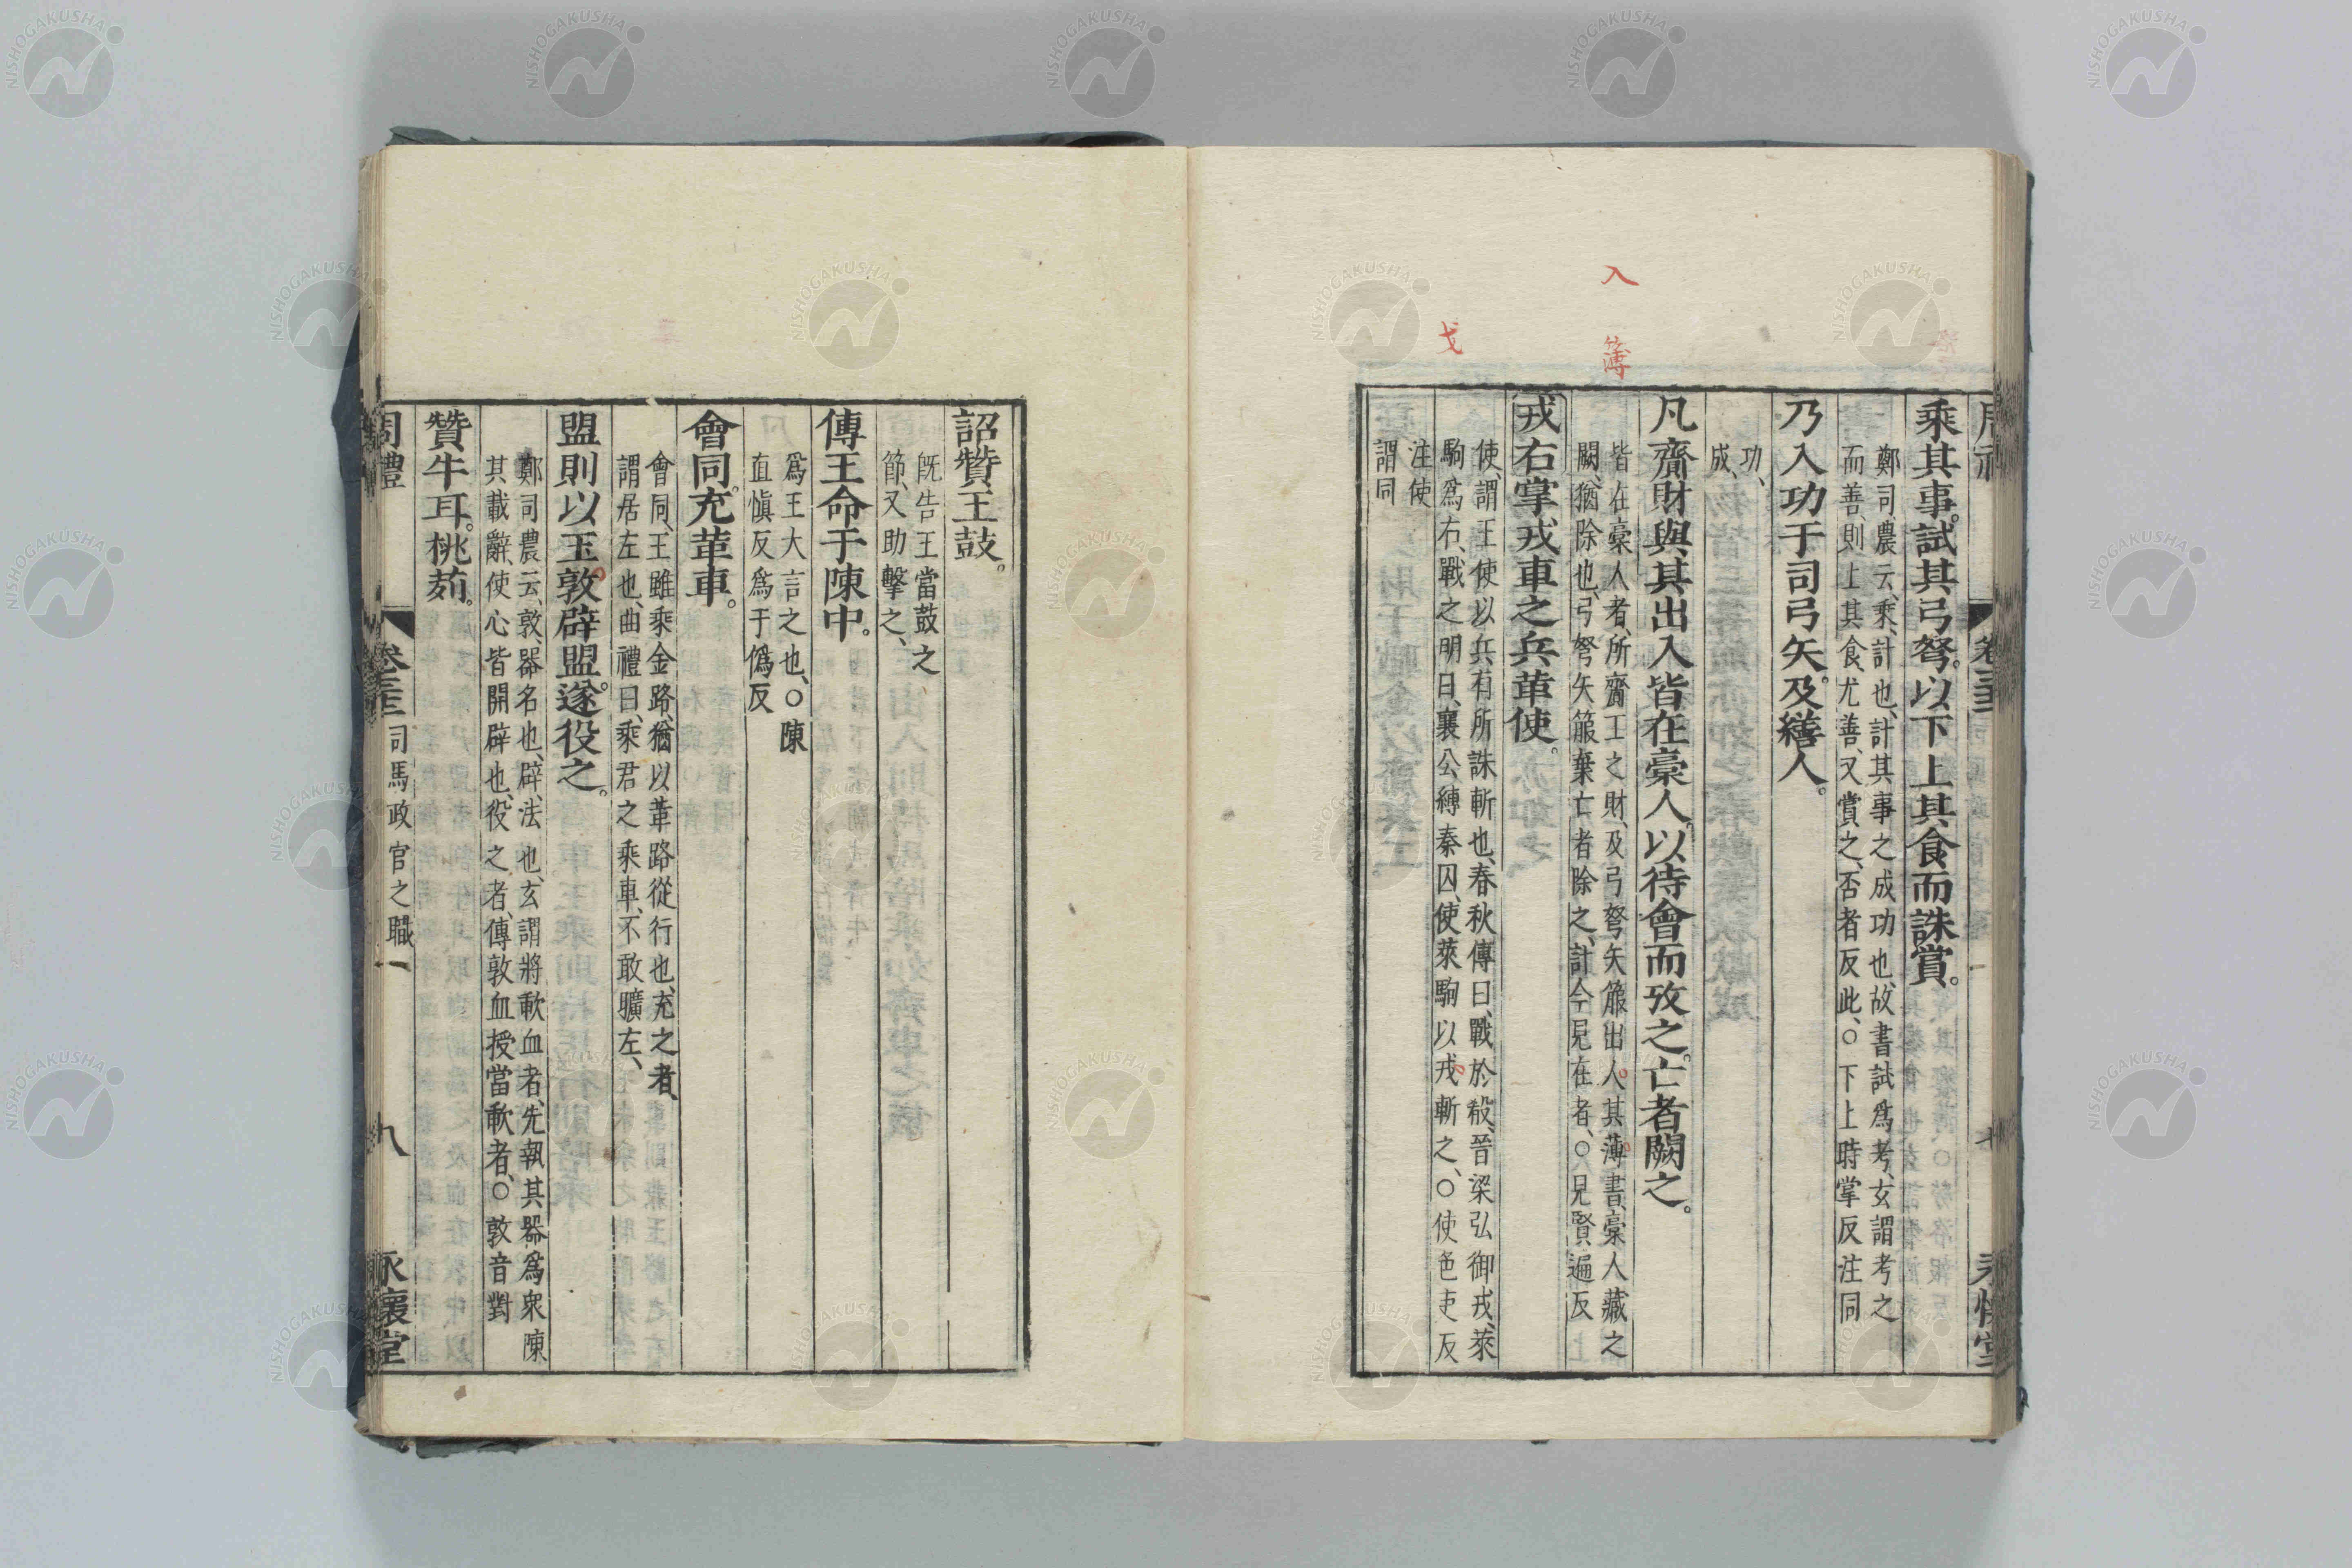 入
簿
戈
乘其事。試其弓弩。以下上其食而誅賞。
鄭司農云、乘、計也、計其事之成功也、故書試爲考、玄謂考之
而善、則上其食、尤善、又賞之、否者反此、○下上時掌反注同
乃入功于司弓矢。及繕人。
功、
成、
凡齎財與、其出入皆在槀人。以待會而攷之。亡者闕之。
皆在槀人者、所齎工之財、及弓弩矢箙出人其薄書、槀人藏之
闕、猶除也、弓弩矢箙棄亡者除之、計今見在者、○見賢遍反
戎右掌戎車之兵革使。
使、謂王使以兵有所誅斬也、春秋傳曰、戰於殽、晉梁弘御戎、萊
駒爲右、戰之明日、襄公縛秦囚、使萊駒以戎斬之、○使色吏反
注使
謂同
永懷堂
詔贊王鼓。
既告王當鼓之
節、又助擊之、
傳王命于陳中。
爲王大言之也、○陳
直愼反爲于僞反
會同。充革車。
會同、王雖乘金路、猶以革路從行也、充之者、
謂居左也、曲禮曰、乘君之乘車、不敢曠左、
盟則以玉敦辟盟。遂役之。
鄭司農云、敦、器名也、辟、法也、玄謂將歃血者、先執其器爲衆陳
其載辭、使心皆開辟也、役之者、傳敦血授當歃者、○敦音對
贊牛耳。桃茢。
周禮 卷三十二 司馬政官之職一 九 永懷堂
NISHOGAKUSHA